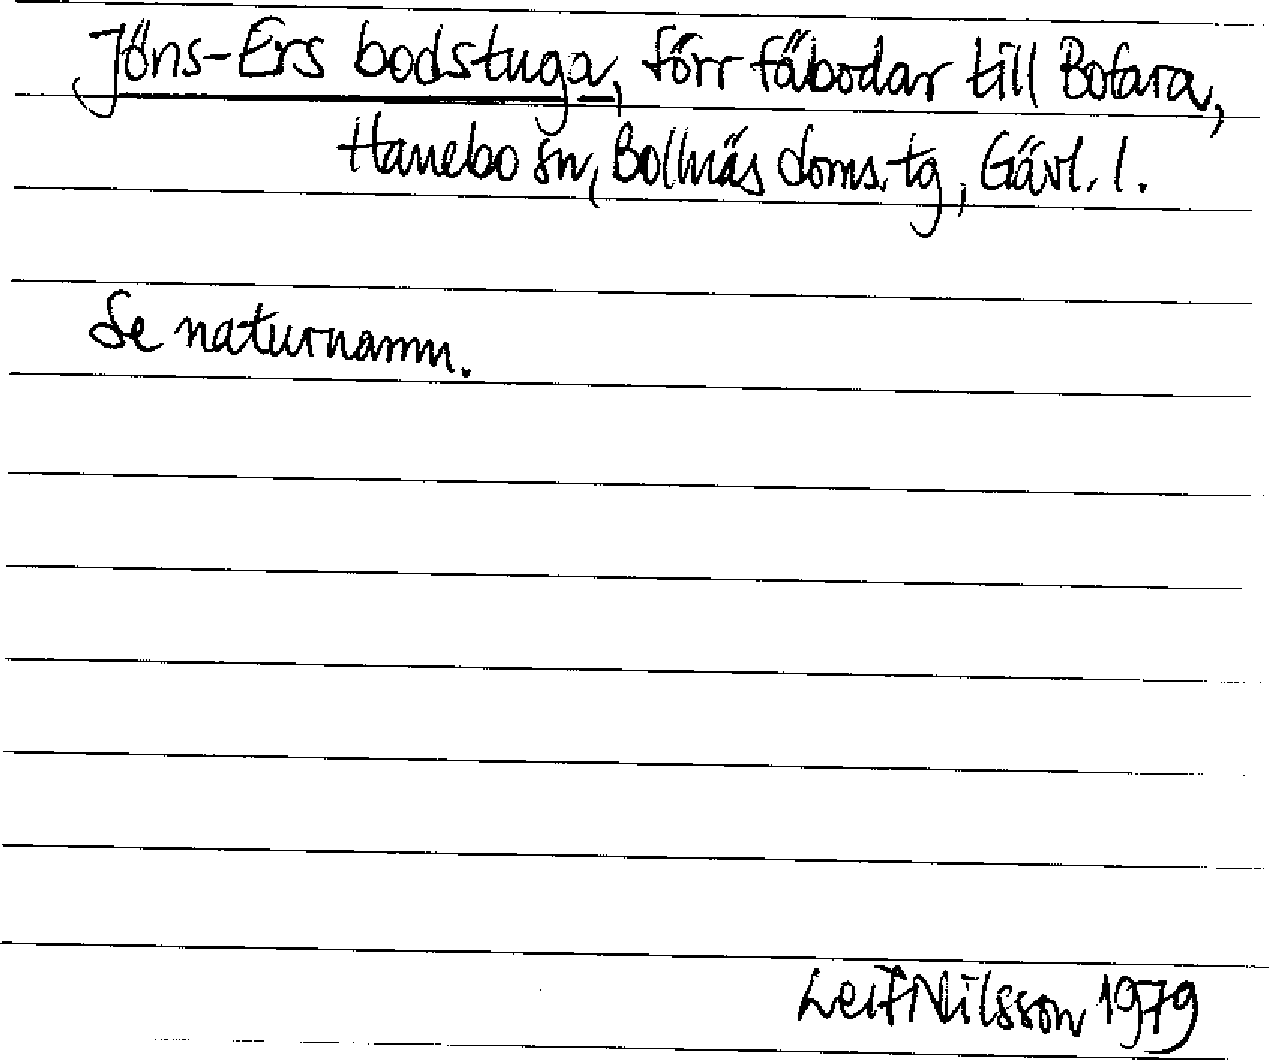 Jöns-Ers bodstuga, förr fäbodar till Bofara,
Hanebo sn, Bollnäs doms.tg, Gävl. l.
Se naturnamn.
Leif Nilsson 1979